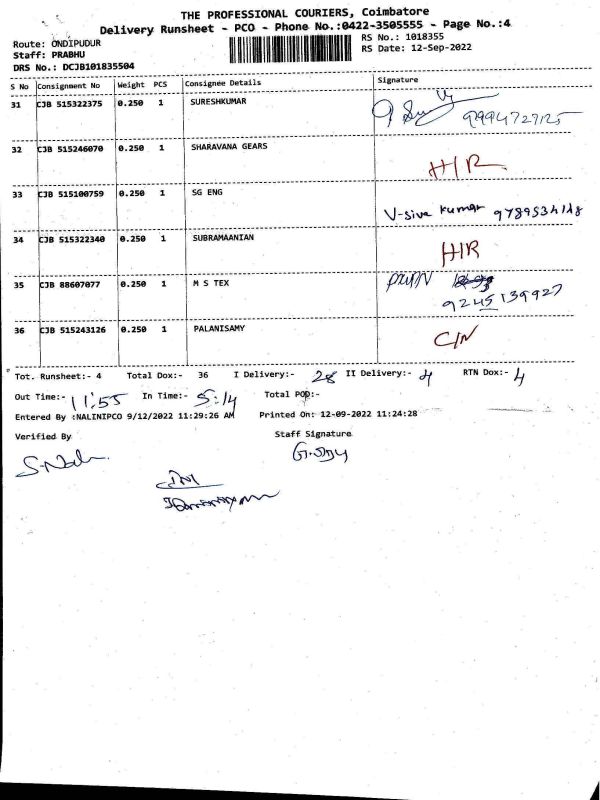 THE PROFESSIONAL COURIERS, Coimbatore
Delivery Runsheet - PCO - Phone No.:0422-3505555 - Page No.:4
Route: ONDIPUDUR RS No.: 1018355
Staff: PRABHU RS Date: 12-Sep-2022
DRS No.: DCJB101835504
S No Consignment No Weight PCS Consignee Details Signature
31 CJB 515322375 0.250 1 SURESHKUMAR 9994727125
32 CJB 515246070 0.250 1 SHARAVANA GEARS H/R
33 CJB 515100759 0.250 1 SG ENG V-siva kumar
34 CJB 515322340 0.250 1 SUBRAMAANIAN H/R
35 CJB 88607077 0.250 1 M S TEX
9245139927
36 CJB 515243126 0.250 1 PALANISAMY C/N
Tot. Runsheet:- 4 Total Dox:- 36 I Delivery:- 28 II Delivery:- 4 RTN Dox:- 4
Out Time:- 11:55 In Time:- 5:14 Total POD:-
Entered By :NALINIPCO 9/12/2022 11:29:26 AM Printed On: 12-09-2022 11:24:28
Verified By Staff Signature